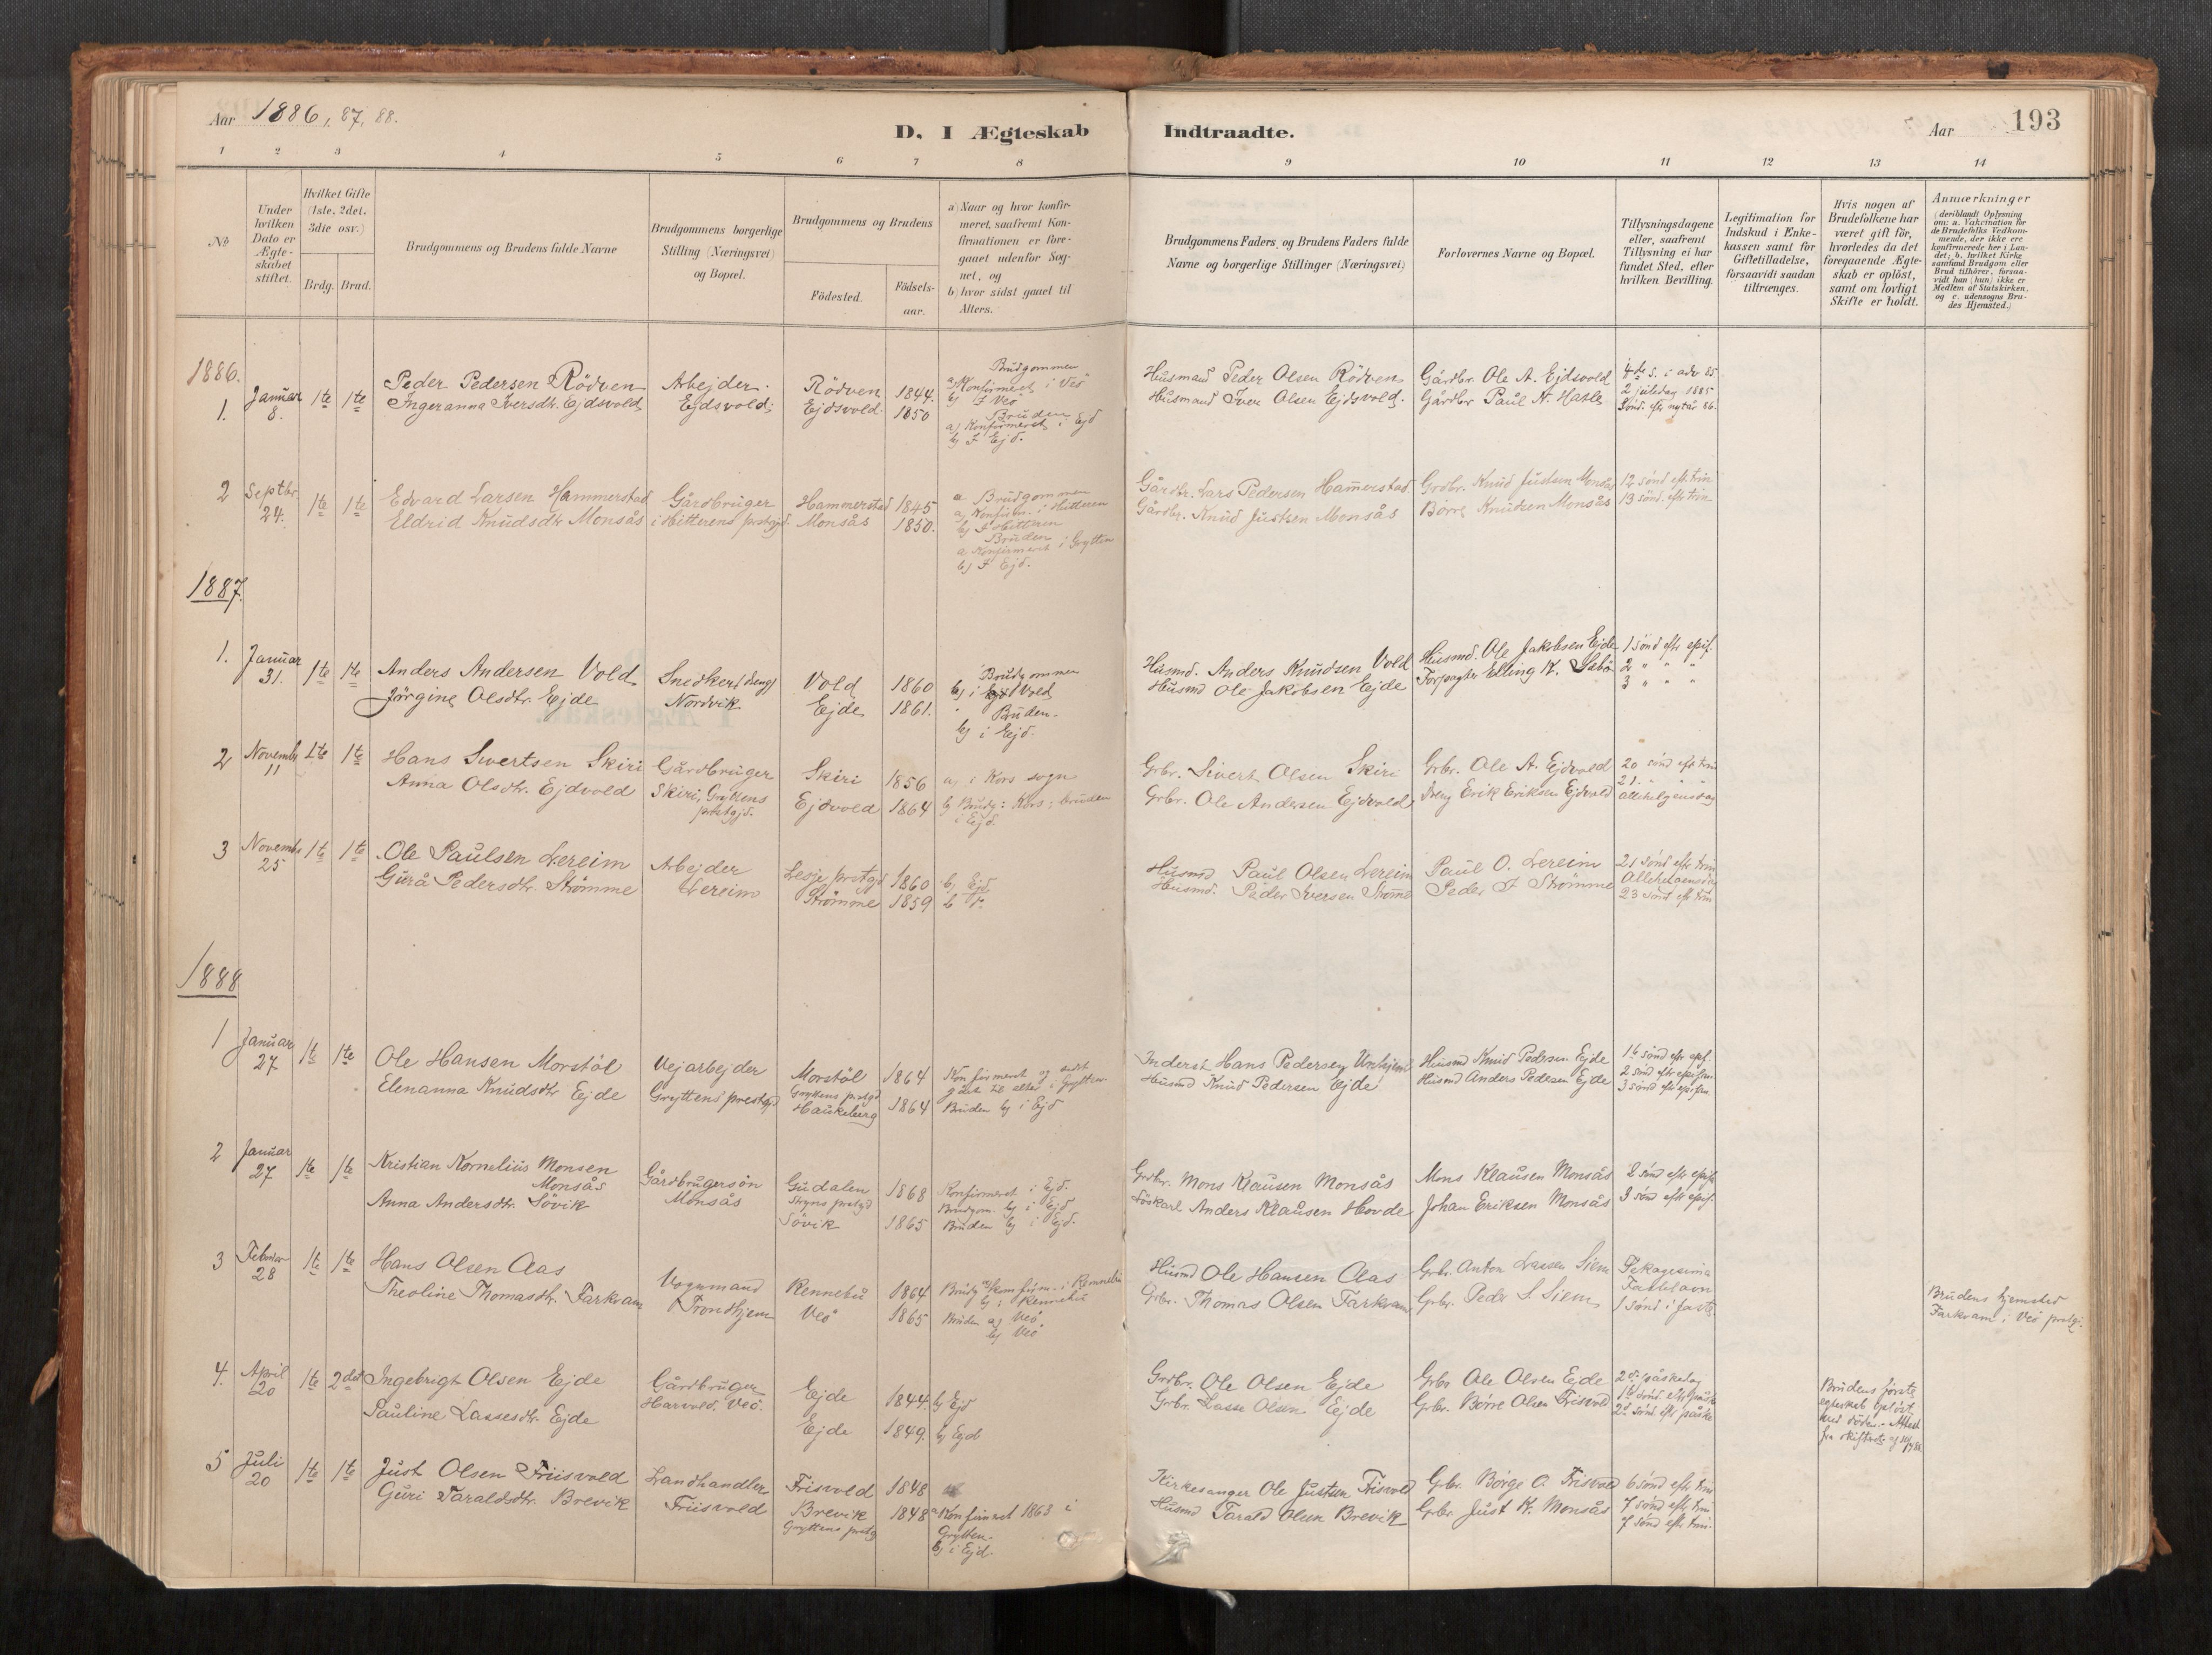 Aar 1886, 87, 88.
D. I Ægteskab Indtraadte.
Aar 193
1 2 3 4 5 6 7 8 9 10 11 12 13 14
№
Under hvilken Dato er Ægteskabet stiftet.
Hvilket Gifte (1ste, 2det, 3die osv.)
Brdg. Brud.
Brudgommens og Brudens fulde Navne
Brudgommens borgerlige Stilling (Næringsvei) og Bopæl.
Brudgommens og Brudens
Födested. Födsels-aar.
a) Naar og hvor konfirmeret, saafremt Konfirmationen er foregaaet udenfor Sognet, og
b) hvor sidst gaaet til Alters.
Brudgommens Faders og Brudens Faders fulde Navne og borgerlige Stillinger (Næringsvei)
Forlovernes Navne og Bopæl.
Tillysningsdagene eller, saafremt Tillysning ei har fundet Sted, efter hvilken Bevilling.
Legitimation for Indskud i Enkekassen samt for Giftetilladelse, forsaavidt saadan tiltrænges.
Hvis nogen af Brudefolkene har været gift för, hvorledes da det foregaaende Ægteskab er oplöst, samt om lovligt Skifte er holdt.
Anmærkninger (deriblandt Oplysning om: a. Vakcination for de Brudefolks Vedkommende, der ikke ere konfirmerede her i Landet; b. hvilket Kirkesamfund Brudgom eller Brud tilhörer, forsaavidt han (hun) ikke er Medlem af Statskirken, og c. udensogns Brudes Hjemsted.)
1886.
1. Januar 8. 1te 1te
Peder Pedersen Rödven Arbejder. Rödven 1844.
Ingeranna Iversdtr. Ejdsvold Ejdsvold. Ejdsvold. 1850
Brudgommen
a) Konfirmeret i Veö
b) I Veö
Bruden
a) Konfirmeret i Ejd
b) I Ejd.
Husmand Peder Olsen Rödven Gårdbr. Ole A. Ejdsvold 4de s. i adv 85
Husmand Iver Olsen Ejdsvold. Gårdbr Paul N. Hatle 2 juledag 1885
Sönd. eftr nytår 86.
2 Septbr. 24. 1te 1te
Edvard Larsen Hammerstad Gårdbruger Hammerstad 1845
Eldrid Knudsdtr Monsås i Hitterens prstgjd. Monsås 1850.
Brudgommen
a) Konfirm. i Hitteren
b) I Hitteren
Bruden
a) Konfirmeret i Grytten
b) I Ejd.
Gårdbr. Lars Pedersen Hamerstad Grdbr. Knud Justsen Monsås 12 sönd eft trin
Gårdbr. Knud Justsen Monsås Börre Knudsen Monsås 13 sönd. eftr trin
1887.
1. Januar 31. 1te 1te
Anders Andersen Vold Snedker Vold 1860
Jörgine Olsdtr. Ejde Nordvik Ejde 1861.
Brudgommen
b) i Vold
Bruden.
b) i Ejd.
Husmd. Anders Knudsen Vold Husmd. Ole Jakobsen Ejde 1 sönd eftr epif.
Husmd Ole Jakobsen Ejde Forpagter Elling K. Sæbö 2 " " "
3 " " "
2 Novembr 11 1te 1te
Hans Sivertsen Skiri Gårdbruger Skiri 1856 a) i Kors sogn
Anna Olsdtr. Ejdvold Skiri, Gryttens prstgjd. Ejdvold 1864 b) Brudg: Kors; bruden i Ejd.
Grbr. Sivert Olsen Skiri Grbr. Ole A. Ejdvold 20 sönd eft trin
Grbr. Ole Andersen Ejdvold, Dreng Erik Eriksen Ejdvold 21. " " "
allehelgensdag
3 Novembr 25 1te 1te
Ole Paulsen Lereim Arbejder Lesje prstgd 1860 b) Ejd
Gurå Pedersdtr. Strömme Lereim Strömme 1859
Husmd Paul Olsen Lereim Paul O. Lereim 21 sönd eftr trin
Husmd. Peder Iversen Strömme Peder I Strömme Allehelgensdag
23 sönd eftr trin
1888
1 Januar 27 1te 1te
Ole Hansen Morstöl Vejarbejder Morstöl 1864 Konfirmeret og sidst
Elenanna Knudsdtr Ejde Gryttens prestgjd Gryttens prstgd gået til alters i Grytten
Haukeberg 1864 Bruden b) i Ejd
Inderst Hans Pedersen Husmd Knud Pedersen Ejde 1te sönd eftr epif.
Husmd Knud Pedersen Ejde Husmd Anders Pedersen Ejde 2 sönd eftr epifan.
3 sönd eft epifan
2 Januar 27 1te 1te
Kristian Kornelius Monsen Monsås Gårdbrugersön Gudalen 1868 Konfirmeret i Ejd.
Anna Andersdtr. Sövik Monsås prstgd Brudgom. b) i Ejd
Sövik 1865 Bruden b) i Ejd.
Grdbr. Mons Klausen Monsås Mons Klausen Monsås 2 sönd eftr epifa
Löskarl Anders Klausen Hovde Johan Eriksen Monsås 3 sönd eftr epif.
3 Februar 28 1te 1te
Hans Olsen Aas Vognmand Rennebu 1864 Brudg a) konfirm. i Rennebu
b) i Rennebu
Theoline Thomasdtr. Farkvam Trondhjem Veö 1865 Bruden a) Veö
b) Veö
Husmd Ole Hansen Aas Grbr. Anton Lassen Siem
Grbr. Thomas Olsen Farkvam Grbr. Peder L Siem Fastelavn
1 sönd i faste
Brudens hjemsted
Farkvam i Veö prstgj.
4. April 20 1te 2det
Ingebrigt Olsen Ejde Gårdbruger Ejde 1844. b) Ejd
Pauline Lassesdtr. Ejde Harvold. Veö. Ejde 1849. b) Ejd
Grdbr. Ole Olsen Ejde Grbr Ole Olsen Ejde 2d påskedag
Grbr. Lasse Olsen Ejde Grbr. Börre Olsen Frisvold 1te sönd. eftr påske
2d sönd eftr påske
Brudens förste
egteskab oplöst
ved döden.- Attest
fra skifteret
5 Juli 20 1te 1te
Just Olsen Friisvold Landhandler Frisvold 1848
Guri Taraldsdtr. Brevik Friisvold Brevik 1848 a) Konfirmeret 1863 i
Gryttens prstg Grytten.
b) i Ejd.
Kirkesanger Ole Justsen Frisvold Grbr. Börge O. Frisvold 6 sönd eftr trin
Husmd Tarald Olsen Brevik Grbr Just K. Monsås 7 sönd eftr trin
7 sönd eftr trin.